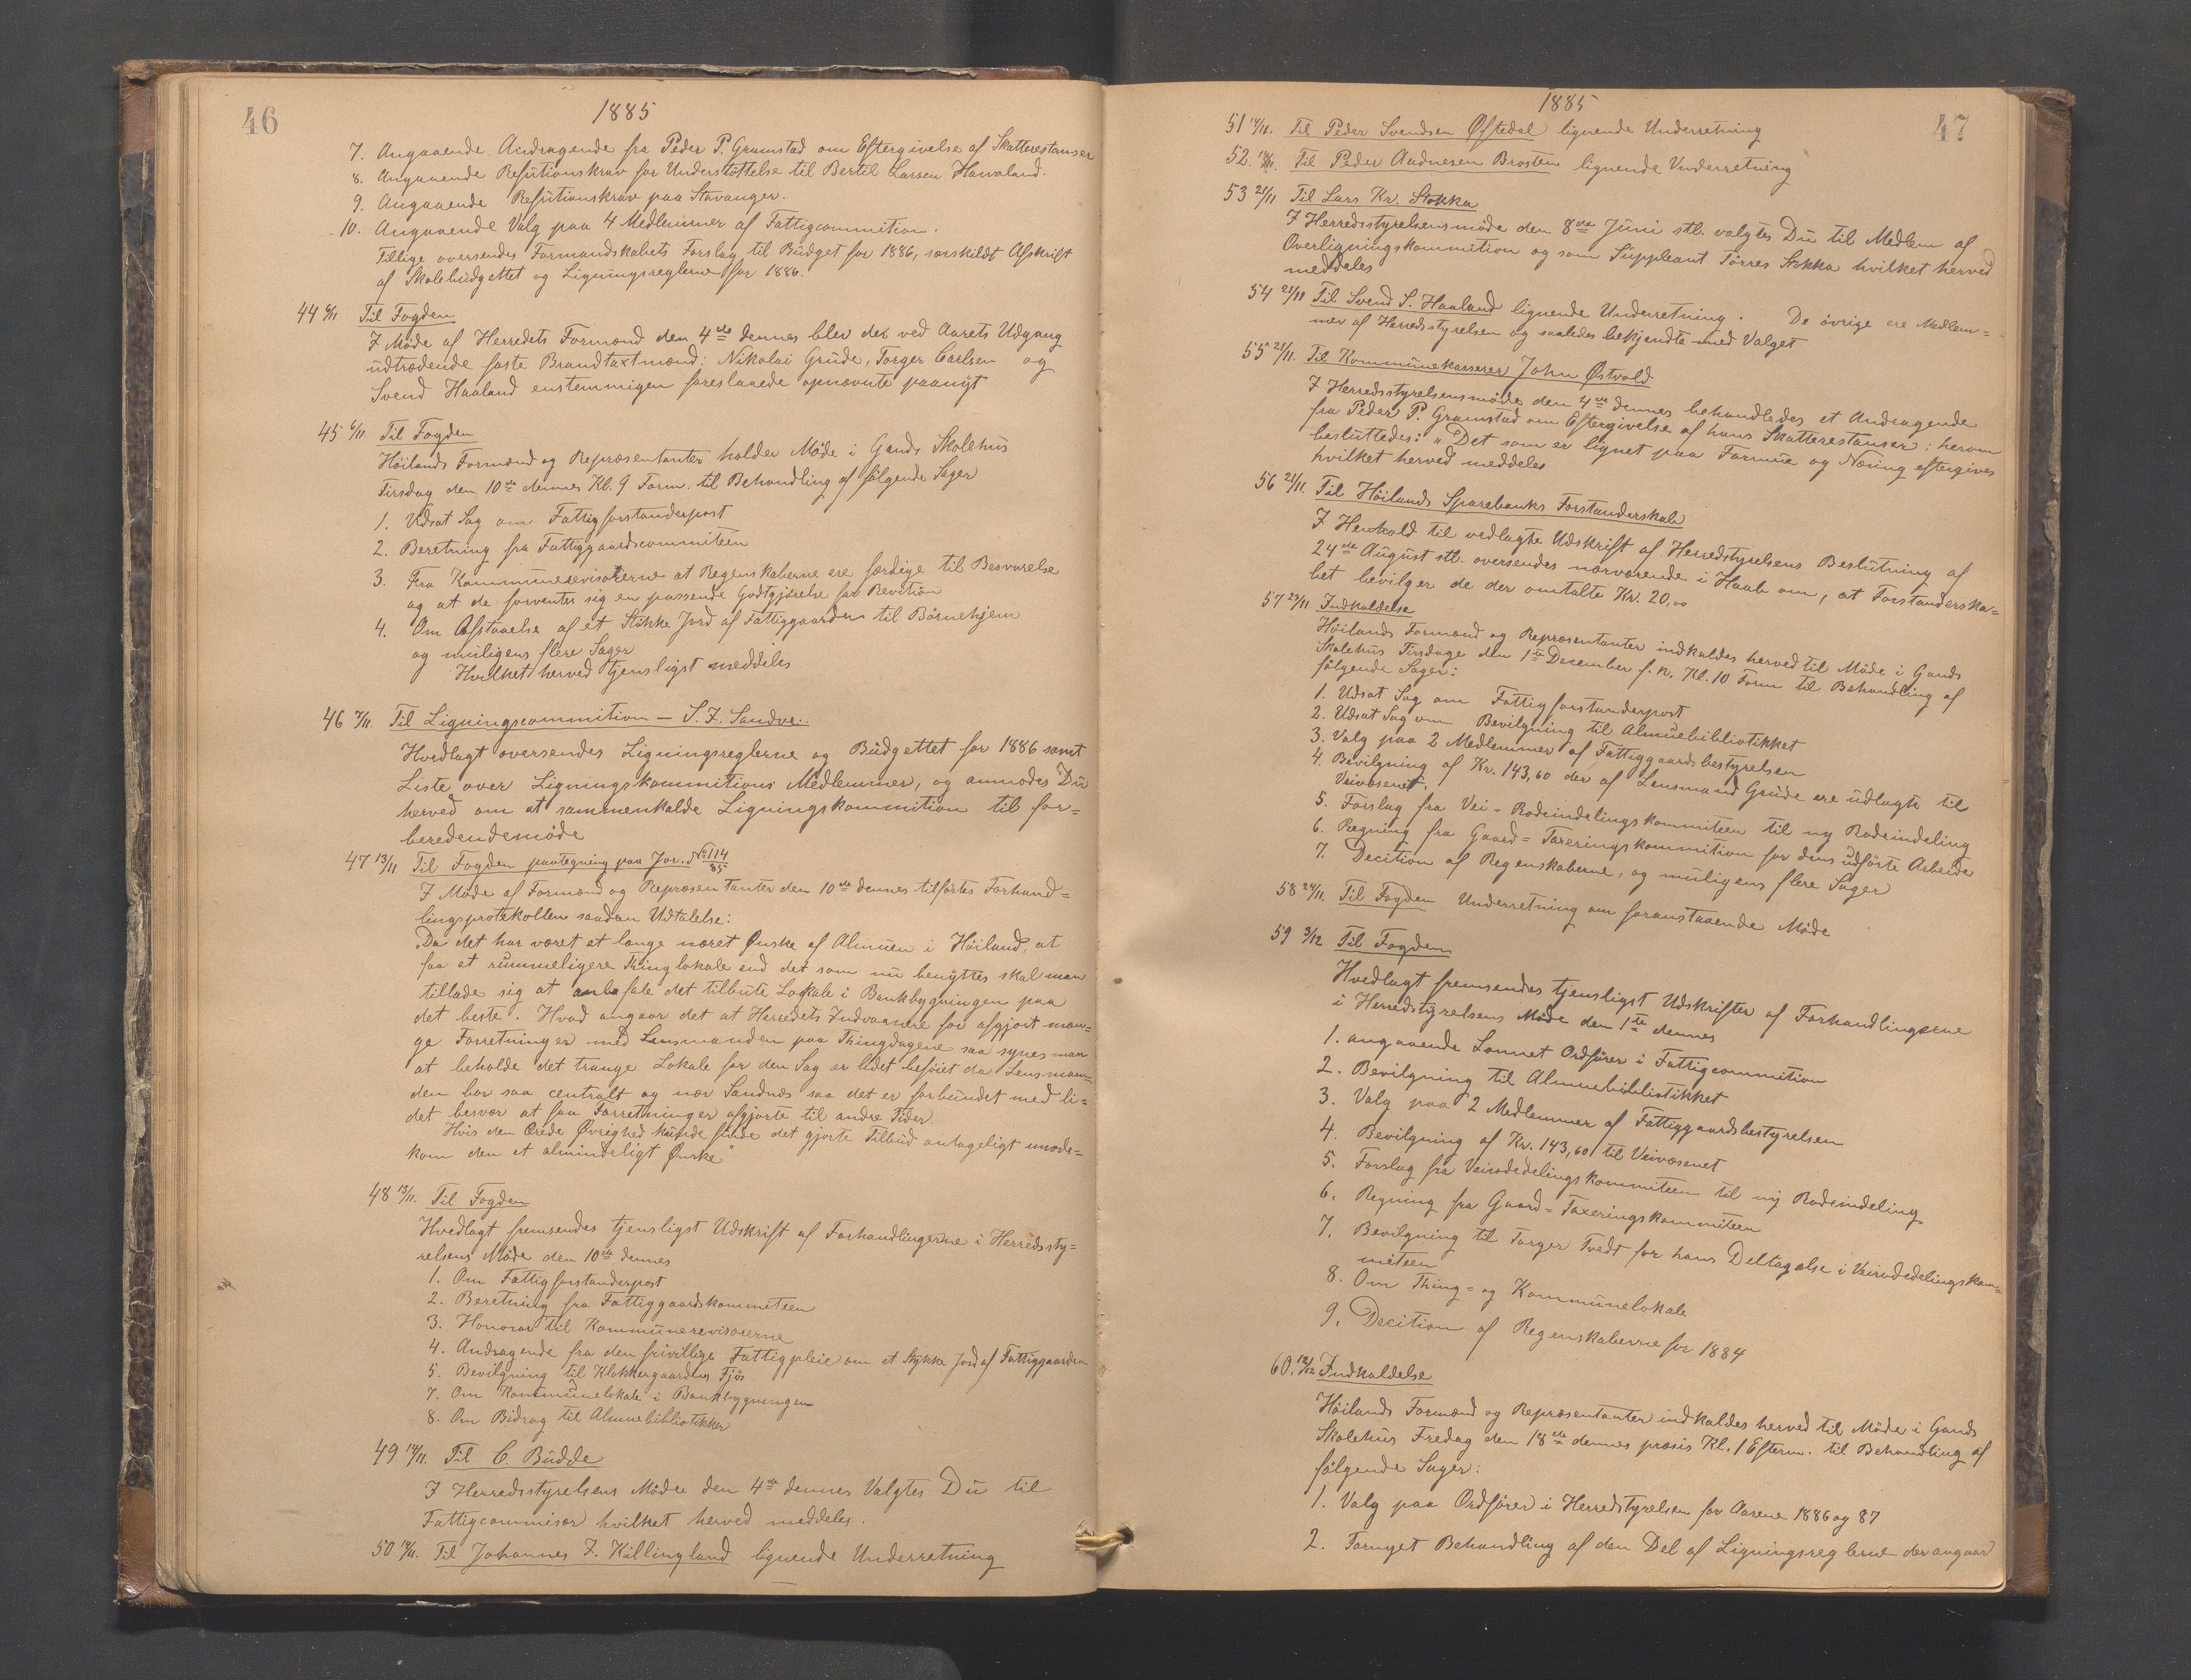 46
1885
7. Angaaende Andragende fra Peder P. Gramstad om Eftergivelse af Skatterestanser
8. Angaaende Refutionskrav for Understøttelse til Bertil Larsen Havaland.
9. Angaaende Refutionskrav paa Stavanger.
10. Angaaende Valg paa 4 Medlemmer af Fattigcommition.
Tillige oversendes Formandskabets Forslag til Budget for 1886, særskildt Afskrift
af Skolebudgettet og Ligningsreglerne for 1886.
44 6/11 Til Fogden
I Møde af Herredets Formænd den 4de dennes blev de ved Aarets Udgang
udtrædende faste Brandtaxtmænd: Nikolai Grude, Torger Carlsen og
Svend Haaland enstemmigen foreslaaede opnævnte paanyt
45 6/11 Til Fogden
Høilands Formænd og Repræsentanter holder Møde i Gands Skolehus
Tirsdag den 10de dennes Kl. 9 Form. til Behandling af følgende Sager
1. Udsat Sag om Fattigforstanderpost
2. Beretning fra Fattiggaardscommiteen
3. Fra Kommunerevisorerne at Regenskaberne ere færdige til Besvarelse
og at de forventer sig en passende Godtgjørelse for Revition
4. Om Afstaaelse af et Stökke Jord af Fattiggaarden til Børnehjem
og muligens flere Sager
Hvilket herved tjensligst meddeles
46 7/11. Til Ligningscommition – S. I. Sandve.
Hvedlagt oversendes Ligningsreglerne og Budgettet for 1886 samt
Liste over Ligningskommitions Medlemmer, og anmodes Du
herved om at sammenkalde Ligningskommition til for=
beredendemøde
47 13/11 Til Fogden paategning paa Jor. No 114/85
I Møde af Formænd og Repræsentanter den 10de dennes tilførtes Forhand=
lingsprotokollen saadan Udtalelse:
"Da det har været et længe næret Ønske af Almuen i Høiland, at
faa et rummeligere Thinglokale end det som nu benyttes skal man
tillade sig at anbefale det tilbute Lokale i Bankbygningen paa
det beste. Hvad angaar det at Herredets Indvaanere for afgjort man=
ge Forretninger med Lensmanden paa Thingdagene saa synes man
at beholde det trange Lokale for den Sag er lidet beføiet da Lensman=
den bor saa centralt og nær Sandnæs saa det er forbundet med li=
det besvær at faa Forrethninger afgjorte til andre Tider.
Hvis den Ærede Øvrighed kunde finde det gjorte Tilbud antageligt imøde=
kom den et almindeligt Ønske"
48 13/11. Til Fogden
Hvedlagt fremsendes tjensligst Udskrift af Forhandlingerne i Herredssty=
relsens Møde den 10de dennes
1. Om Fattigforstanderpost
2. Beretning fra Fattiggaardskommiteen
3. Honorar til Kommunerevisorerne
4. Andragende fra den frivillige Fattigpleie om et Stykke Jord af Fattiggaarden
5. Bevilgning til Klokkergaardens Fjös
7. Om Kommunelokale i Bankbygningen
8. Om Bidrag til Almuebibliotikker
49 14/11. Til C. Budde
I Herredsstyrelsens Møde den 4de dennes Valgtes Du til
Fattigcommisær hvilket herved meddeles.
50 14/11. Til Johannes I. Kallingland lignende Underretning
1885
47
51 14/11. Til Peder Svendsen Øftedal lignende Underretning
52. 14/11. Til Peder Aadnesen Brosten lignende Underretning
53 21/11 Til Lars Kr. Stokka
I Herredsstyrelsensmøde den 8de Juni stl. valgtes Du til Medlem af
Overligningskommition og som Suppleant Tørres Stokka hvilket herved
meddeles
54 21/11 Til Svend S. Haaland lignende Underretning. De øvrige ere Medlem=
mer af Herredsstyrelsen og saaledes bekjendte med Valget
55 21/11. Til Kommunekasserer John Østvold
I Herredsstyrelsensmøde den 4de dennes behandledes et Andragende
fra Peder P. Gramstad om Eftergivelse af hans Skatterestanser; herom
besluttedes: "Det som er lignet paa Formue og Næring eftergives
hvilket herved meddeles
56 21/11. Til Høilands Sparebanks Forstanderskab
I Henhold til vedlagte Udskrift af Herredstyrelsens Beslutning af
24de August stl. oversendes nærværende i Haab om, at Forstanderska=
bet bevilger de der omtalte Kr. 20,00
57 23/11 Indkaldelse
Høilands Formænd og Repræsentanter indkaldes herved til Møde i Gands
Skolehus Tirsdage den 1te December f. k. Kl. 10 Form til Behandling af
følgende Sager:
1. Udsat Sag om Fattigforstanderpost
2. Udsat Sag om Bevilgning til Almuebibliotikket
3. Valg paa 2 Medlemmer af Fattiggaardsbestyrelsen
4. Bevilgning af Kr. 143,60 der af Lensmand Grude ere udlagte til
Veivæsenet.
5. Forslag fra Vei-Rodeindelingskommiteen til ny Rodeindeling
6. Regning fra Gaard=Taxeringskommition for dens udførte Arbeide
7. Decition af Regenskaberne, og muligens flere Sager
58 24/11. Til Fogden Underretning om foranstaaende Møde
59 3/12 Til Fogden
Hvedlagt fremsendes tjensligst Udskrifter af Forhandlingerne
i Herredstyrelsens Møde den 1te dennes
1. angaaende Lønnet Ordfører i Fattigcommition
2. Bevilgning til Almuebibliotikket
3. Valg paa 2 Medlemmer af Fattiggaardsbestyrelsen
4. Bevilgning af Kr. 143,60 til Veivæsenet
5. Forslag fra Veirodedelingskommiteen til ny Rodeindeling
6. Regning fra Gaard=Taxeringskommiteen
7. Bevilgning til Torger Tvedt for hans Deltagelse i Veirodedelingskom=
miteen
8. Om Thing= og Kommunelokale
9. Decition af Regenskaberne for 1884
60. 12/12 Indkaldelse
Høilands Formænd og Repræsentanter indkaldes herved til Møde i Gands
Skolehus Fredag den 18de dennes præsis Kl. 1 Efterm. til Behandling af
følgende Sager:
1. Valg paa Ordfører i Herredstyrelsen for Aarene 1886 og 87
2. Fornyet Behandling af den Del af Ligningsreglerne der angaar